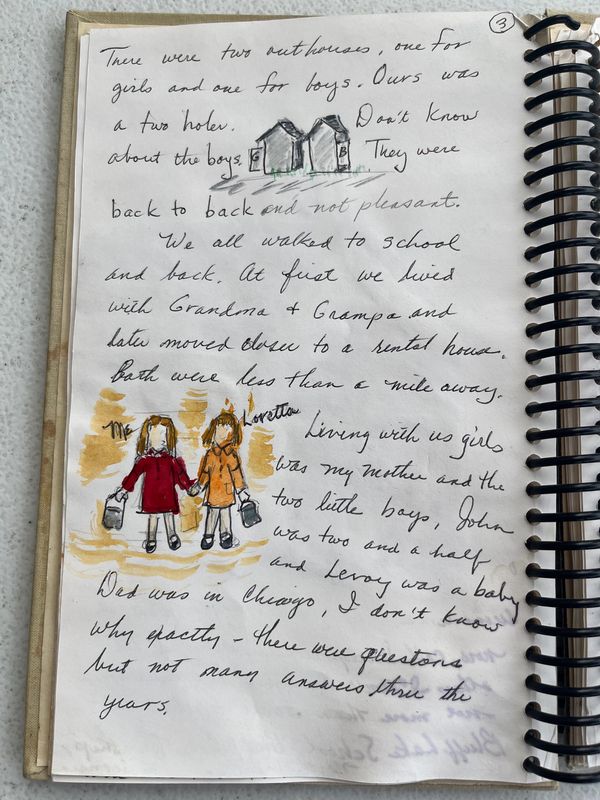 3
There were two outhouses, one for
girls and one for boys. Ours was
a two holer. Don't know
about the boys. G B They were
back to back and not pleasant.
We all walked to school
and back. At first we lived
with Grandma & Grampa and
later moved closer to a rental house.
Both were less than a mile away.
Me Loretta
Living with us girls
was my mother and the
two little boys, John
was two and a half
and Leroy was a baby
Dad was in Chicago, I don't know
why exactly – there were questons
but not many answers thru the
years.